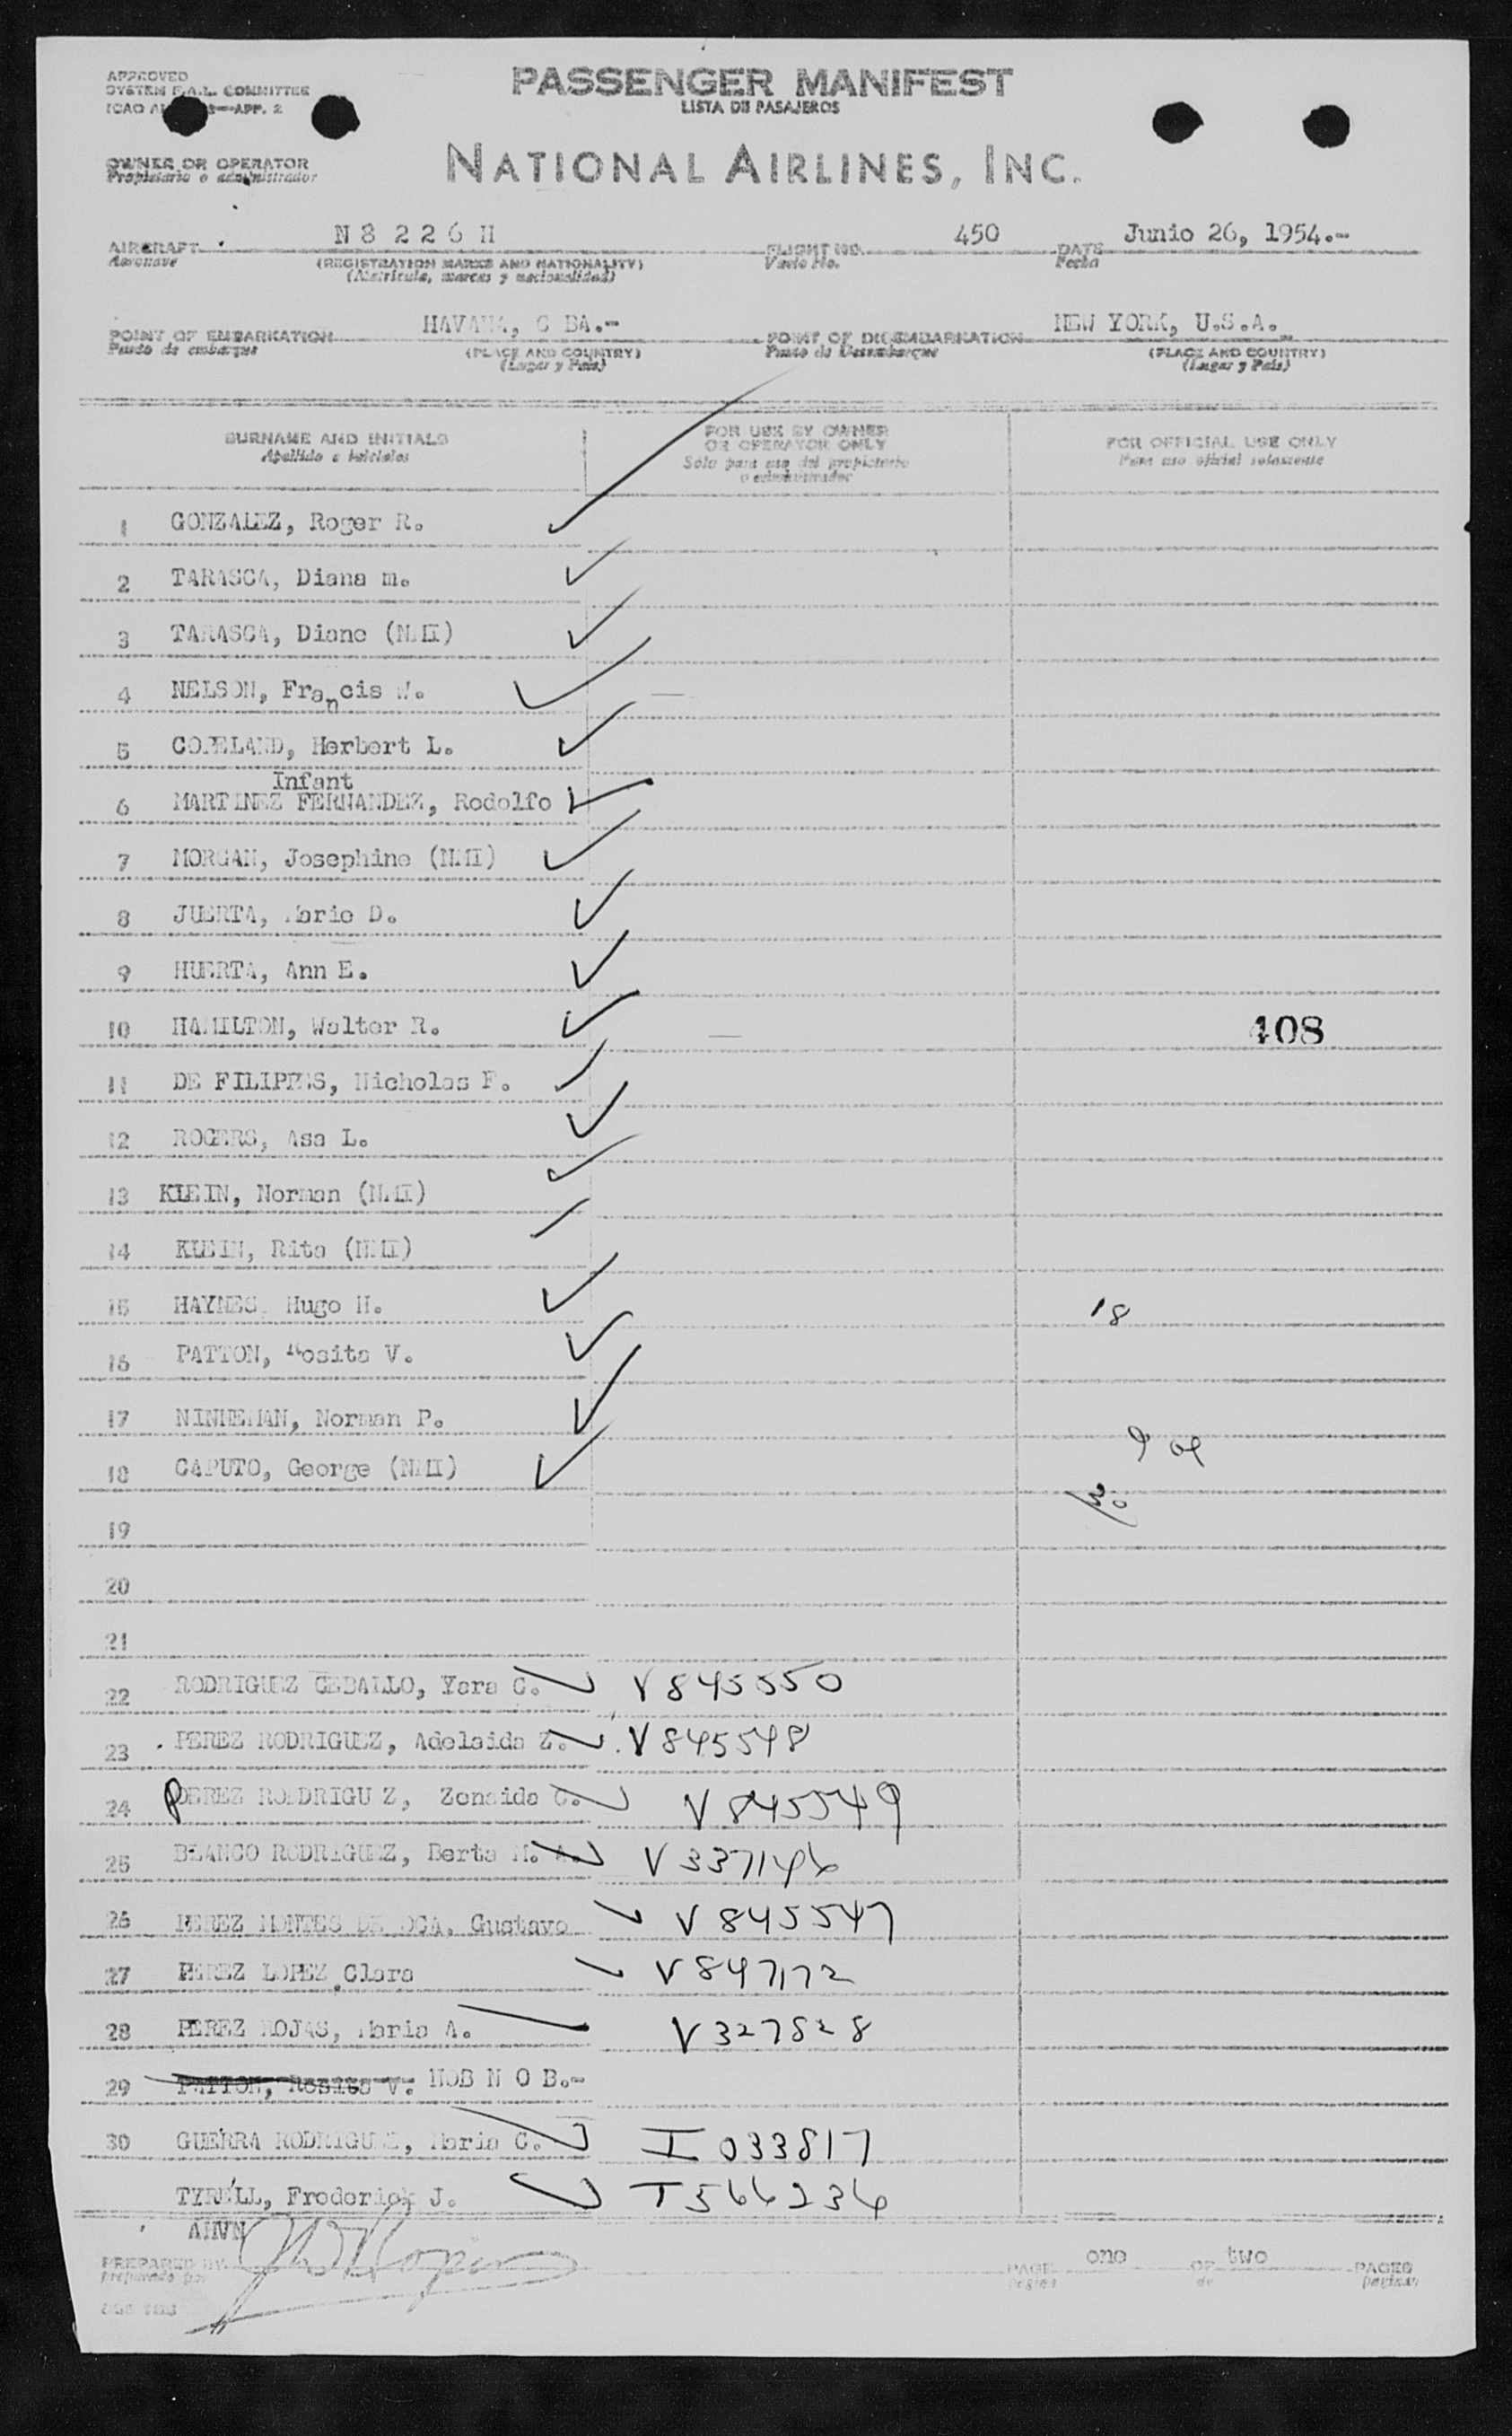 APPROVED
SYSTEM F.A.L. COMMITTEE
ICAO APP. 2
PASSENGER MANIFEST
LISTA DE PASAJEROS
OWNER OR OPERATOR
Propietario o administrador
NATIONAL AIRLINES, INC.
AIRCRAFT N 8 2 2 6 H FLIGHT NO. 450 DATE Junio 26, 1954.-
Aeronave (REGISTRATION MARKS AND NATIONALITY) Vuelo No. Fecha
(Matricula, marcas y nacionalidad)
POINT OF EMBARKATION HAVANA, C BA.- POINT OF DISEMBARKATION NEW YORK, U.S.A.
Punto de embarque (PLACE AND COUNTRY) Punto de Desembarque (PLACE AND COUNTRY)
(Lugar y Pais) (Lugar y Pais)
SURNAME AND INITIALS FOR USE BY OWNER OR OPERATOR ONLY FOR OFFICIAL USE ONLY
Apellido e iniciales Sólo para uso del propietario o administrador Para uso oficial solamente
1 GONZALEZ, Roger R.
2 TARASCA, Diana m.
3 TARASCA, Diane (NMI)
4 NELSON, Francis W.
5 COPELAND, Herbert L.
Infant
6 MARTINEZ FERNANDEZ, Rodolfo
7 MORGAN, Josephine (NMI)
8 JUERTA, Mario D.
9 HUERTA, Ann E.
10 HAMILTON, Walter R. 408
11 DE FILIPPES, Nicholas F.
12 ROGERS, Asa L.
13 KLEIN, Norman (NMI)
14 KLEIN, Rita (NMI)
15 HAYNES Hugo H. 18
16 PATTON, Rosita V.
17 NINHEMAN, Norman P.
18 CAPUTO, George (NMI)
19
20
21
22 RODRIGUEZ CEBALLO, Yara C. V845550
23 PEREZ RODRIGUEZ, Adelaida Z. V845548
24 PEREZ RODRIGU Z, Zenaida C. V845549
25 BLANCO RODRIGUEZ, Berta M. A. V337146
26 PEREZ MONTES DE OCA, Gustavo V845547
27 PEREZ LOPEZ, Clara V847172
28 PEREZ ROJAS, Maria A. V327828
29 PATTON, Rosita V. NOB N O B.-
30 GUERRA RODRIGUEZ, Maria C. I 033817
TYRELL, Frederick J. T566236
AMVN
PREPARED BY PAGE one OF two PAGES
preparado por Pagina de paginas